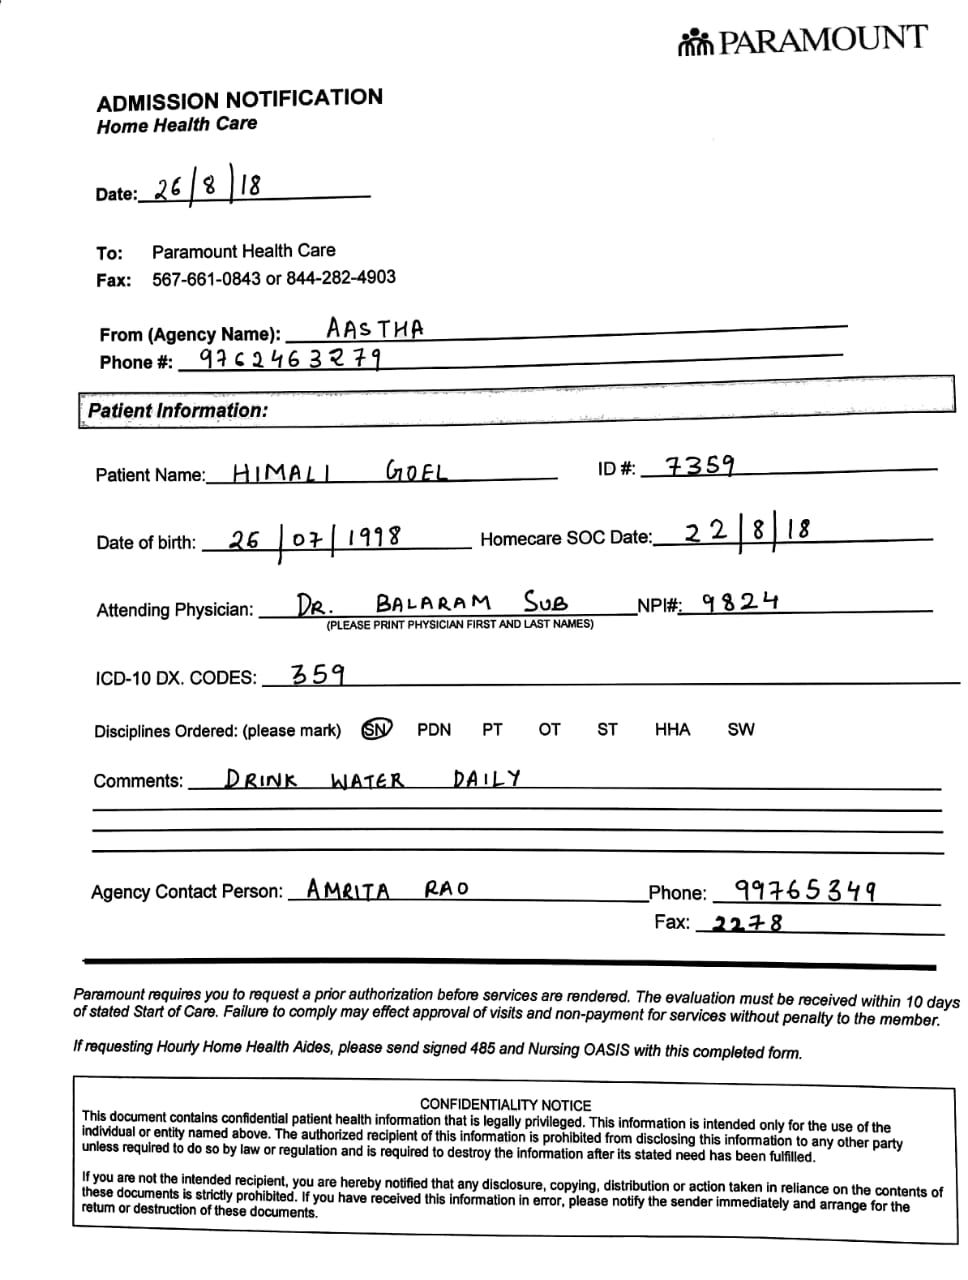 PARAMOUNT
ADMISSION NOTIFICATION
Home Health Care
Date: 26/8/18
To: Paramount Health Care
Fax: 567-661-0843 or 844-282-4903
From (Agency Name): AASTHA
Phone #: 9762463279
Patient Information:
Patient Name: HIMALI GOEL ID #: 7359
Date of birth: 26/07/1998 Homecare SOC Date: 22/8/18
Attending Physician: DR. BALARAM SUB NPI#: 9824
(PLEASE PRINT PHYSICIAN FIRST AND LAST NAMES)
ICD-10 DX. CODES: 359
Disciplines Ordered: (please mark) SN PDN PT OT ST HHA SW
Comments: DRINK WATER DAILY
Agency Contact Person: AMRITA RAO Phone: 99765349
Fax: 2278
Paramount requires you to request a prior authorization before services are rendered. The evaluation must be received within 10 days
of stated Start of Care. Failure to comply may effect approval of visits and non-payment for services without penalty to the member.
If requesting Hourly Home Health Aides, please send signed 485 and Nursing OASIS with this completed form.
CONFIDENTIALITY NOTICE
This document contains confidential patient health information that is legally privileged. This information is intended only for the use of the
individual or entity named above. The authorized recipient of this information is prohibited from disclosing this information to any other party
unless required to do so by law or regulation and is required to destroy the information after its stated need has been fulfilled.
If you are not the intended recipient, you are hereby notified that any disclosure, copying, distribution or action taken in reliance on the contents of
these documents is strictly prohibited. If you have received this information in error, please notify the sender immediately and arrange for the
return or destruction of these documents.